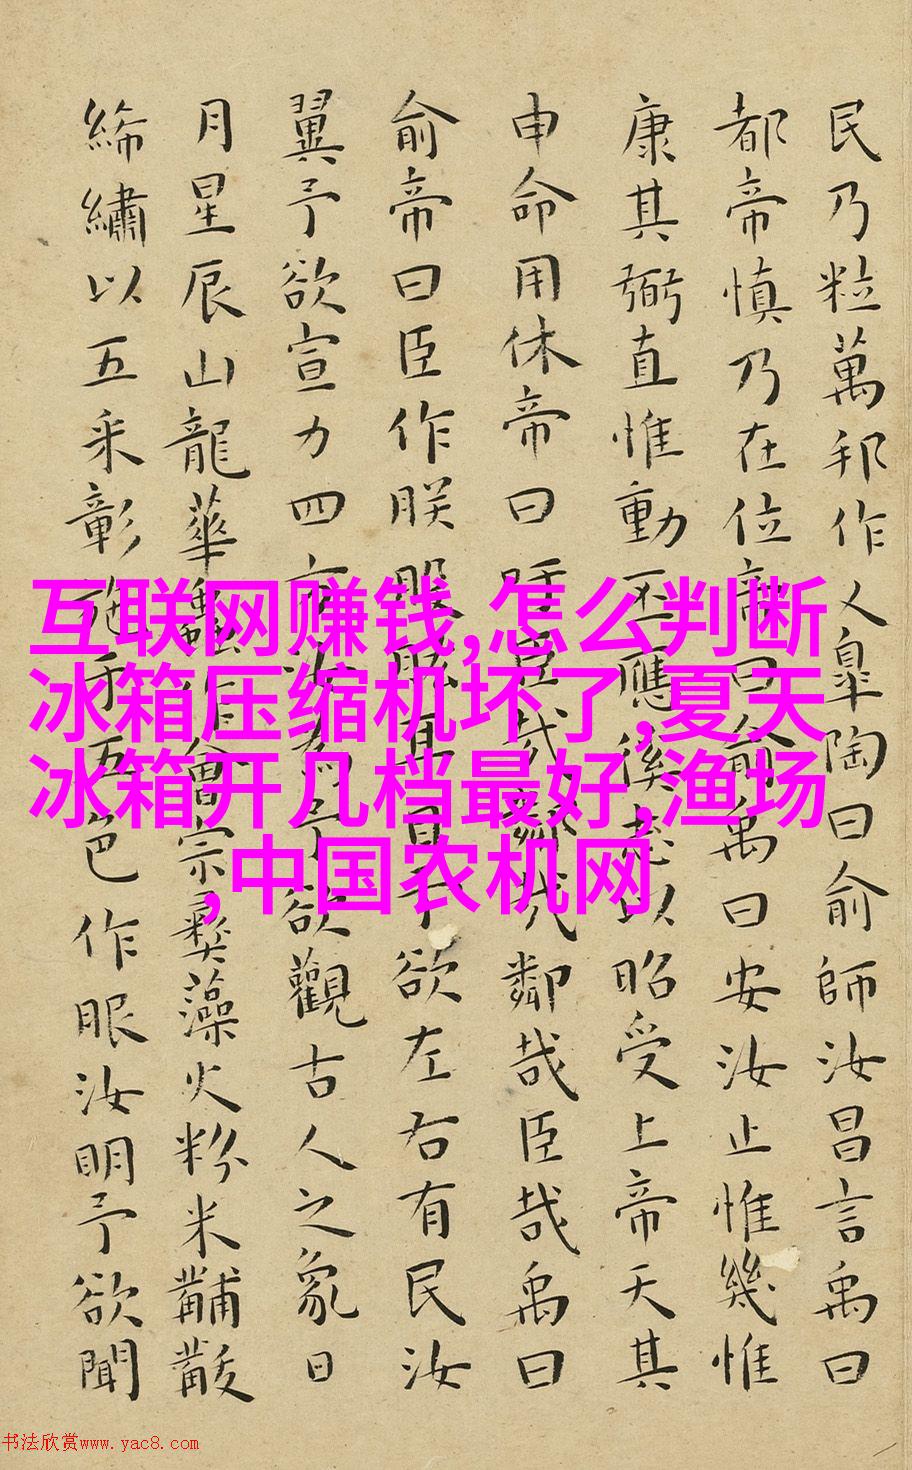 民乃粒萬邦作乂皐陶曰俞師汝昌言禹曰
都帝慎乃在位帝曰俞禹曰安汝止惟幾惟
康其弼直惟動丕應徯志以昭受上帝天其
申命用休帝曰吁臣哉鄰哉鄰哉臣哉禹曰
俞帝曰臣作朕股肱耳目予欲左右有民汝
翼予欲宣力四方汝為予欲觀古人之象日
月星辰山龍華蟲作會宗彝藻火粉米黼黻
絺繡以五采彰施于五色作服汝明予欲聞
互联网赚钱,怎么判断
冰箱压缩机坏了,夏天
冰箱开几档最好,渔场
,中国农机网
书法欣赏www.yac8.com